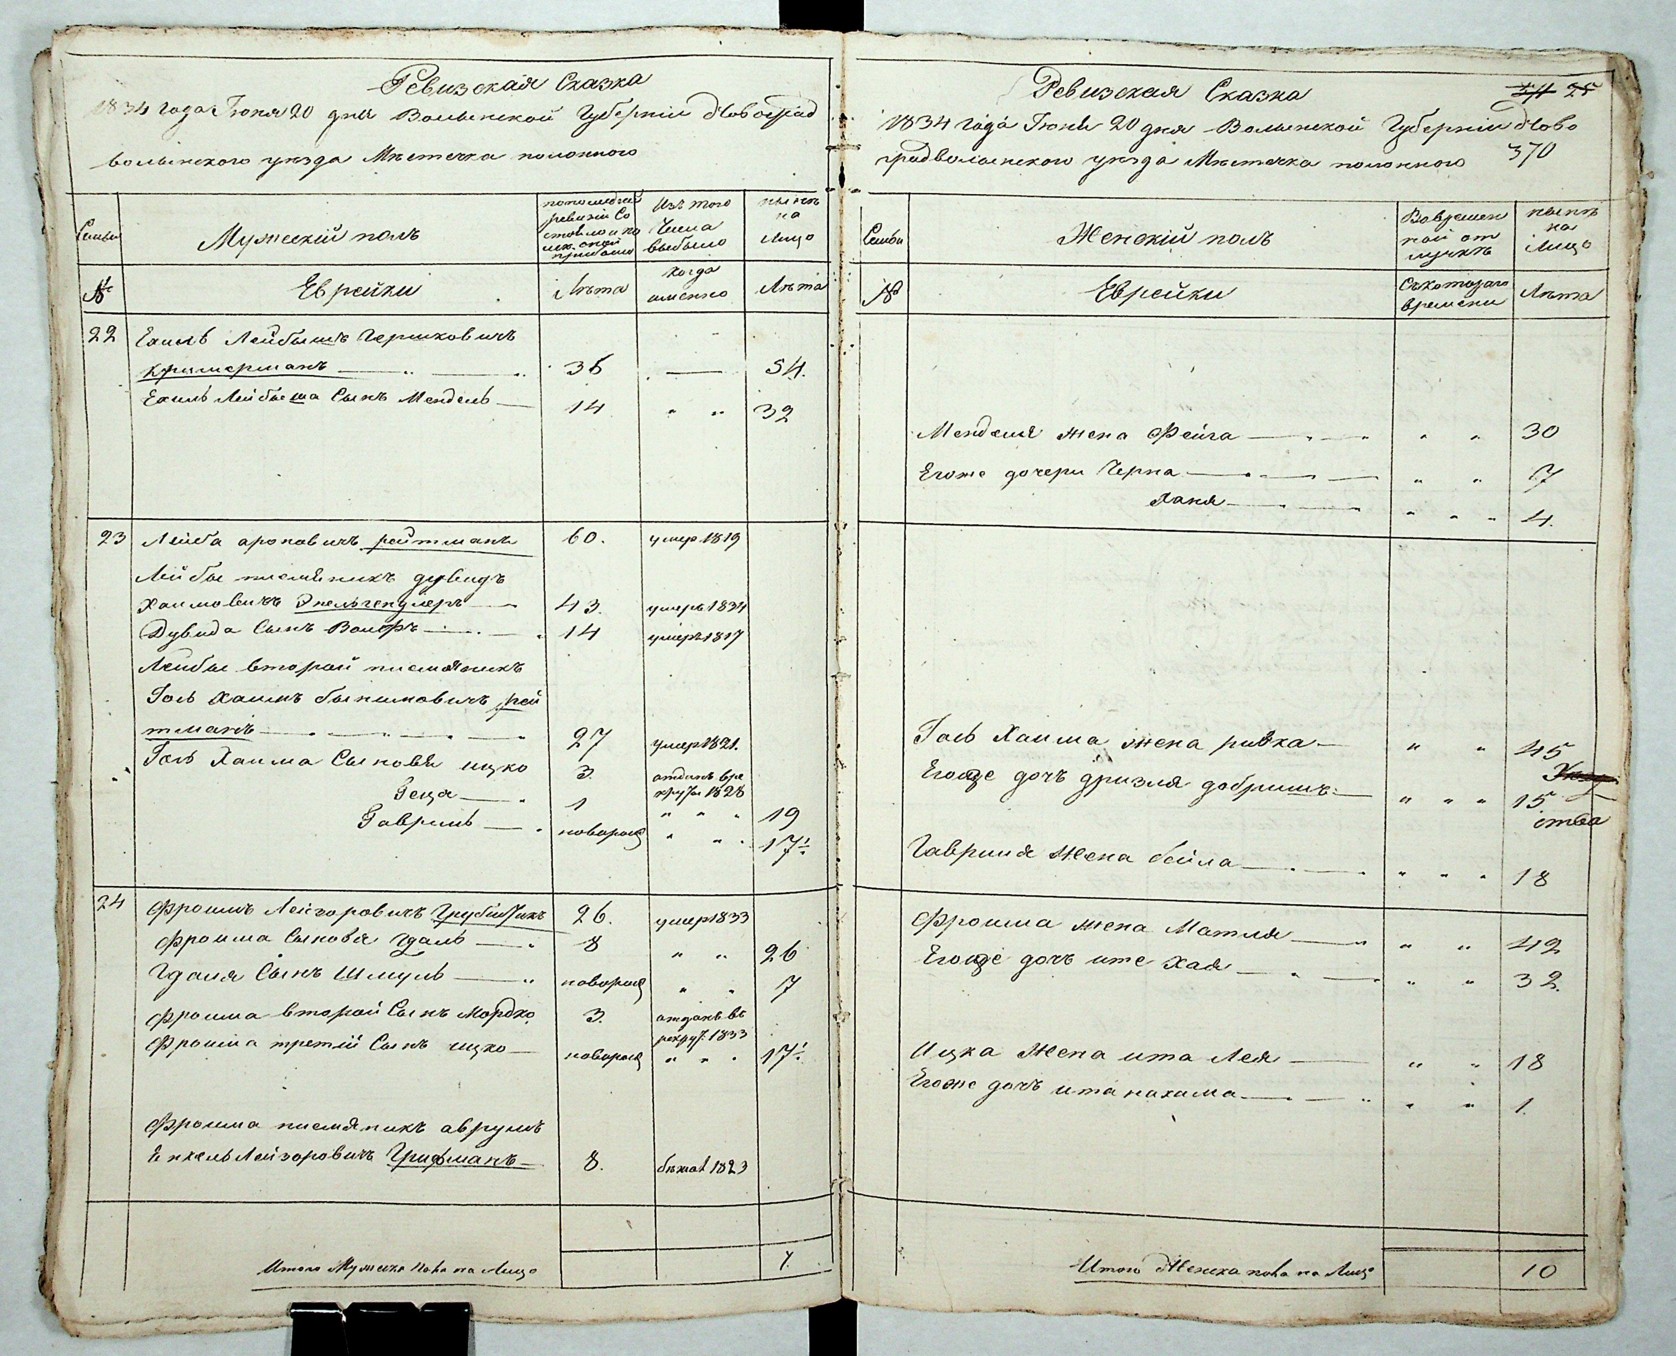 Ревизская Сказка
1834 года Іюня 20 дня Волынской Губерніи Новоград
волынского уезда Местечка полонного
Семьи
Мужескій полъ
по последней ревизіи Состояло и после оной прибыло
Изъ того Числа выбыло
ныне на Лицо
№
Еврейки
Лета
когда именно
Лета
22 Ехиль Лейбышъ Гершковичъ
Кримерманъ 36 54.
Ехиль Лейбыша Сынъ Мендель 14 " " 32
23 Лейба ароновичъ рейтманъ 60. умер 1819
Лейбы племяникъ дувидъ
Хаимовичъ 43. умеръ 1834
Дувида Сынъ Волфъ 14 умеръ 1817
Лейбы второй племяникъ
Іось Хаимъ бынимовичъ рей
тманъ 27 умер 1821.
Іось Хаима Сыновья ицко 3. отданъ в рекруты 1828
Геца 1 " " " 19
Гаврииль новорож " " " 17½
24 Фроимъ Лейзоровичъ 26. умер 1833
Фроима Сыновья Гдаль 8 " " 26
Гдаля Сынъ Шмуль новорож " " 7
Фроима второй Сынъ Мордко 3. отданъ въ рекрут. 1833
Фроима третій Сынъ ицко новорож " " " 17½
Фроима племяникъ аврумъ
Енкель Лейзоровичъ Грифманъ 8. бежал 1823
Итого Мужеска пола на Лицо 7.
Ревизская Сказка 25
1834 года Іюня 20 дня Волынской Губерніи Ново
градволынского уезда Местечка полонного 370
Семьи
Женскій полъ
Во временной отлучке
ныне на Лицо
№
Еврейки
Съ которого времени
Лета
Менделя жена Фейга " " 30
Егоже дочери Черна " " 7
Ханя " " " 4.
Іось Хаима жена ривка " " 45
Егоже дочъ дризля добришъ " " " 15
Гавриля Жена бейла " " " 18
Фроима жена Матля " " 42
Егоже дочъ ите Хая " " 32.
Ицка Жена ита Лея " " 18
Егоже дочъ ита нахама " " 1.
Итого Женска пола на Лицо 10